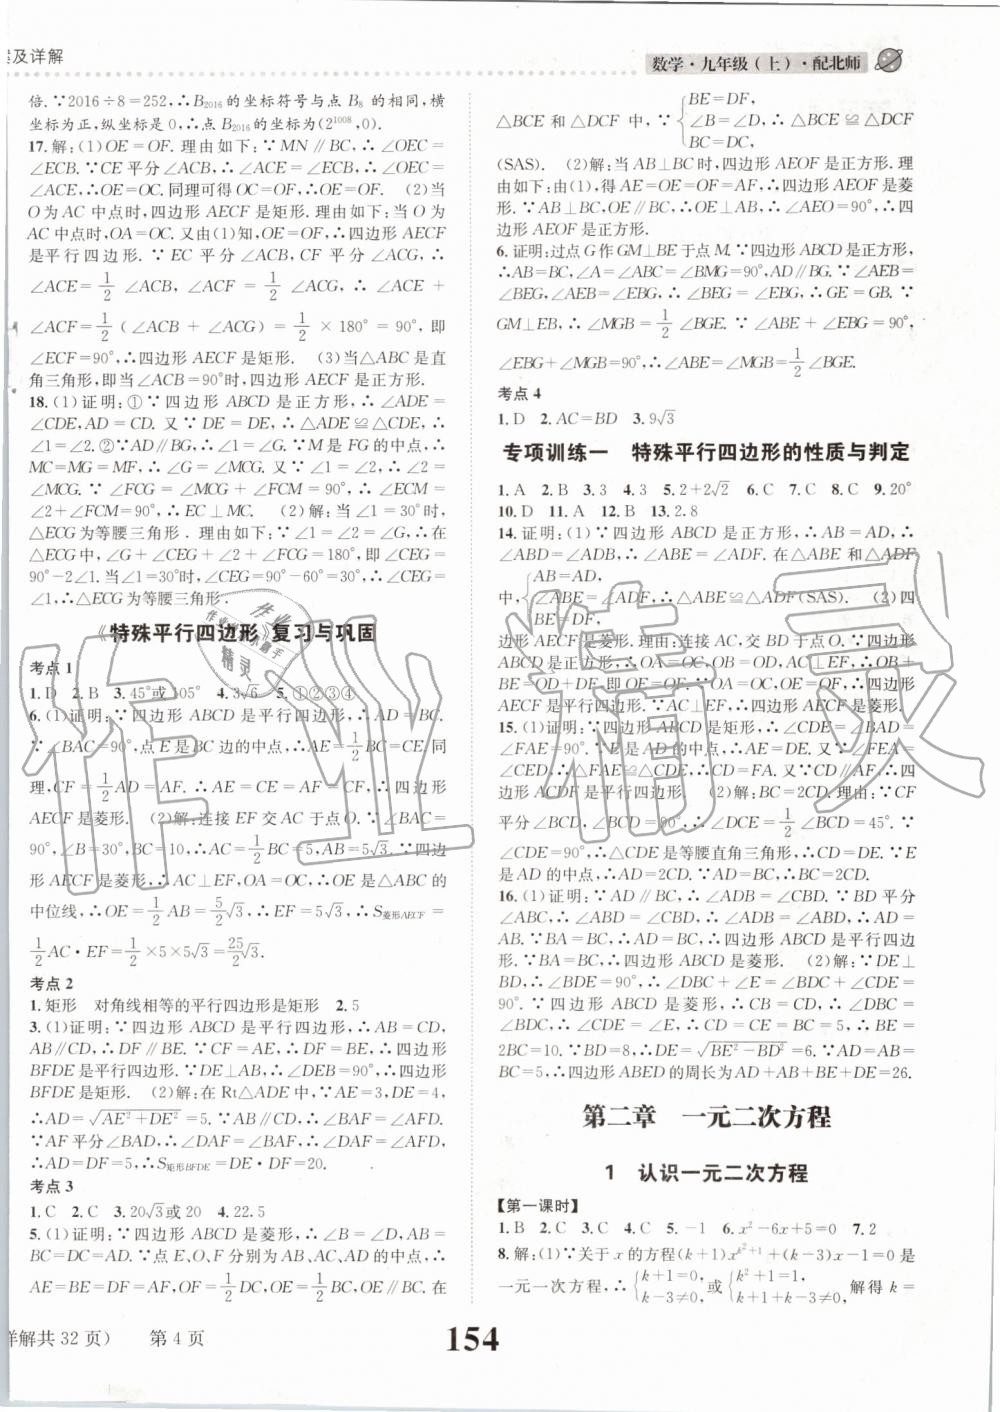 案及详解
数学·九年级(上)·配北师
倍.∵2016÷8=252,∴B₂₀₁₆的坐标符号与点B₈的相同,横
坐标为正,纵坐标是0,∴点B₂₀₁₆的坐标为(2¹⁰⁰⁸,0).
17.解:(1)OE=OF.理由如下:∵MN∥BC,∴∠OEC=
∠ECB.∵CE平分∠ACB,∴∠ACE=∠ECB,∴∠OEC=
∠ACE,∴OE=OC.同理可得OC=OF,∴OE=OF. (2)当
O为AC中点时,四边形AECF是矩形.理由如下:当O为
AC中点时,OA=OC.又由(1)知,OE=OF,∴四边形AECF
是平行四边形.∵EC平分∠ACB,CF平分∠ACG,∴
∠ACE=1/2∠ACB,∠ACF=1/2∠ACG,∴∠ACE+
∠ACF=1/2(∠ACB+∠ACG)=1/2×180°=90°,即
∠ECF=90°,∴四边形AECF是矩形. (3)当△ABC是直
角三角形,即当∠ACB=90°时,四边形AECF是正方形.
18.(1)证明:①∵四边形ABCD是正方形,∴∠ADE=
∠CDE,AD=CD.又∵DE=DE,∴△ADE≌△CDE,∴
∠1=∠2.②∵AD∥BG,∴∠1=∠G.∵M是FG的中点,∴
MC=MG=MF,∴∠G=∠MCG.又∵∠1=∠2,∴∠2=
∠MCG.∵∠FCG=∠MCG+∠FCM=90°,∴∠ECM=
∠2+∠FCM=90°,∴EC⊥MC. (2)解:当∠1=30°时,
△ECG为等腰三角形.理由如下:∵∠1=∠2=∠G,∴在
△ECG中,∠G+∠CEG+∠2+∠FCG=180°,即∠CEG=
90°-2∠1.当∠1=30°时,∠CEG=90°-60°=30°,∴∠CEG=
∠1,∴△ECG为等腰三角形.
《特殊平行四边形》复习与巩固
考点1
1.D 2.B 3.45°或105° 4.3√6 5.①②③④
6.(1)证明:∵四边形ABCD是平行四边形,∴AD=BC.
∵∠BAC=90°,点E是BC边的中点,∴AE=1/2BC=CE.同
理,CF=1/2AD=AF.∴AE=CE=AF=CF,∴四边形
AECF是菱形. (2)解:连接EF交AC于点O.∵∠BAC=
90°,∠B=30°,BC=10,∴AC=1/2BC=5,AB=5√3.∵四边
形AECF是菱形,∴AC⊥EF,OA=OC,∴OE是△ABC的
中位线,∴OE=1/2AB=5/2√3,∴EF=5√3,∴S菱形AECF=
1/2AC·EF=1/2×5×5√3=25/2√3.
考点2
1.矩形 对角线相等的平行四边形是矩形 2.5
3.(1)证明:∵四边形ABCD是平行四边形,∴AB=CD,
AB∥CD,∴DF∥BE.∵CF=AE,∴DF=BE,∴四边形
BFDE是平行四边形.∵DE⊥AB,∴∠DEB=90°,∴四边形
BFDE是矩形. (2)解:在Rt△ADE中,∵AE=3,DE=4,
∴AD=√(AE²+DE²)=5.∵AB∥CD,∴∠BAF=∠AFD.
∵AF平分∠BAD,∴∠DAF=∠BAF,∴∠DAF=∠AFD,
∴AD=DF=5,∴S矩形BFDE=DE·DF=20.
考点3
1.C 2.C 3.20√3或20 4.22.5
5.(1)证明:∵四边形ABCD是菱形,∴∠B=∠D,AB=
BC=DC=AD.∵点E、O、F分别为AB、AC、AD的中点,∴
AE=BE=DF=AF,OF=1/2DC,OE=1/2BC,OE∥BC.在
△BCE和△DCF中,∵{BE=DF,
∠B=∠D,∴△BCE≌△DCF
BC=DC,
(SAS). (2)解:当AB⊥BC时,四边形AEOF是正方形.理
由如下:由(1),得AE=OE=OF=AF,∴四边形AEOF是菱
形.∵AB⊥BC,OE∥BC,∴OE⊥AB,∴∠AEO=90°,∴四
边形AEOF是正方形.
6.证明:过点G作GM⊥BE于点M.∵四边形ABCD是正方形,
∴AB=BC,∠A=∠ABC=∠BMG=90°,AD∥BG.∵∠AEB=
∠BEG,∠AEB=∠EBG,∴∠BEG=∠EBG,∴GE=GB.∵
GM⊥EB,∴∠MGB=1/2∠BGE.∵∠ABE+∠EBG=90°,
∠EBG+∠MGB=90°,∴∠ABE=∠MGB=1/2∠BGE.
考点4
1.D 2.AC=BD 3.9√3
专项训练一 特殊平行四边形的性质与判定
1.A 2.B 3.3 4.3 5.2+2√2 6.C 7.C 8.C 9.20°
10.D 11.A 12.B 13.2.8
14.证明:(1)∵四边形ABCD是正方形,∴AB=AD,∴
∠ABD=∠ADB,∴∠ABE=∠ADF.在△ABE和△ADF
中,∵{AB=AD,
∠ABE=∠ADF,∴△ABE≌△ADF(SAS). (2)四
BE=DF,
边形AECF是菱形.理由:连接AC,交BD于点O.∵四边形
ABCD是正方形,∴OA=OC,OB=OD,AC⊥EF,∴OB+
BE=OD+DF,即OE=OF.∵OA=OC,OE=OF,∴四边形
AECF是平行四边形.∵AC⊥EF,∴四边形AECF是菱形.
15.(1)证明:∵四边形ABCD是矩形,∴∠CDE=∠BAD=
∠FAE=90°.∵E是AD的中点,∴AE=DE.又∵∠FEA=
∠CED,∴△FAE≌△CDE,∴CD=FA.又∵CD∥AF,∴四
边形ACDF是平行四边形. (2)解:BC=2CD.理由:∵CF
平分∠BCD,∠BCD=90°,∴∠DCE=1/2∠BCD=45°.∵
∠CDE=90°,∴△CDE是等腰直角三角形,∴CD=DE.∵E
是AD的中点,∴AD=2CD.∵AD=BC,∴BC=2CD.
16.(1)证明:∵AD∥BC,∴∠ADB=∠CBD.∵BD平分
∠ABC,∴∠ABD=∠CBD,∴∠ADB=∠ABD,∴AD=
AB.∵BA=BC,∴AD=BC,∴四边形ABCD是平行四边
形.∵BA=BC,∴四边形ABCD是菱形. (2)解:∵DE⊥
BD,∴∠BDE=90°,∴∠DBC+∠E=∠BDC+∠CDE=
90°.∵四边形ABCD是菱形,∴CB=CD,∴∠DBC=
∠BDC,∴∠CDE=∠E,∴CD=CE=BC=5,∴BE=
2BC=10.∵BD=8,∴DE=√(BE²-BD²)=6.∵AD=AB=
BC=5,∴四边形ABED的周长为AD+AB+BE+DE=26.
第二章 一元二次方程
1 认识一元二次方程
【第一课时】
1.B 2.C 3.C 4.C 5.-1 6.x²-6x+5=0 7.2
8.解:(1)∵关于x的方程(k+1)x^(k²+1)+(k-3)x-1=0是
一元一次方程,∴{k+1=0, k-3≠0 或{k²+1=1, k-3≠0, 解得k=
详解共32页) 第4页
154
作业精灵